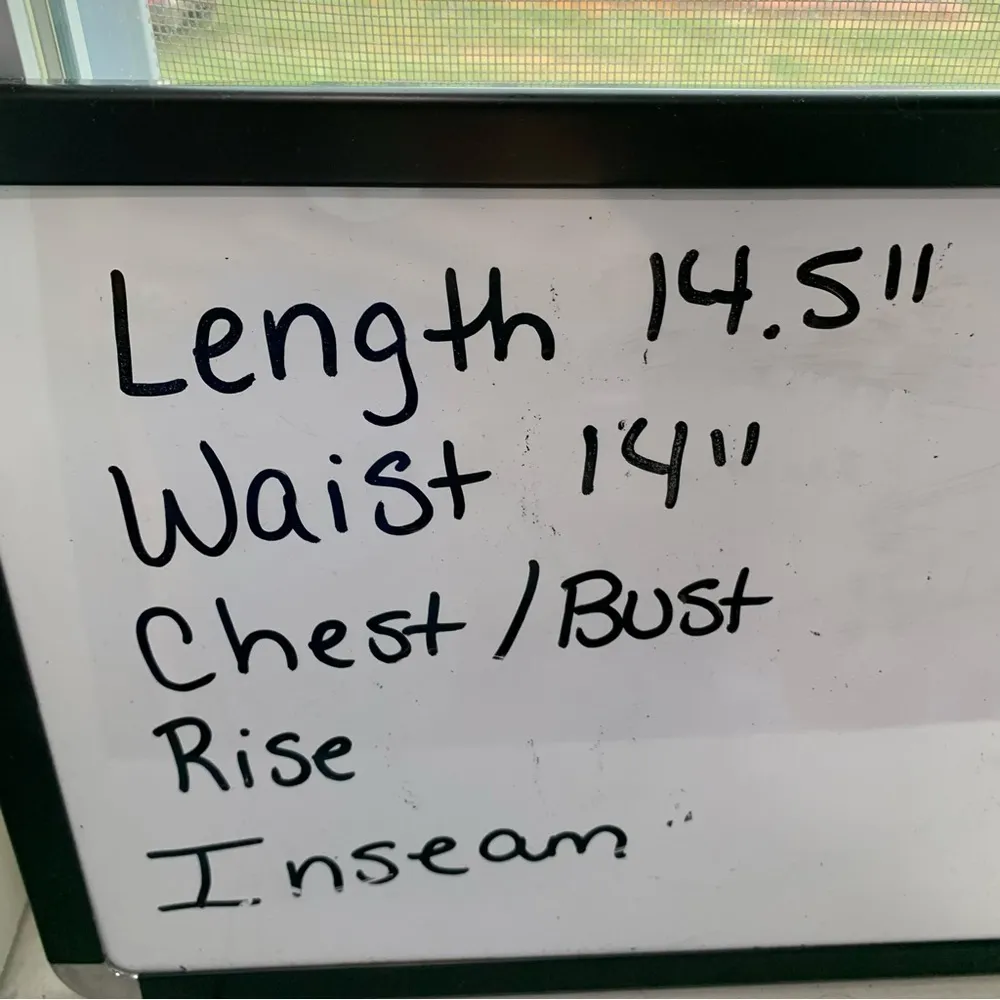 Length 14.5"
Waist 14"
Chest/Bust
Rise
Inseam